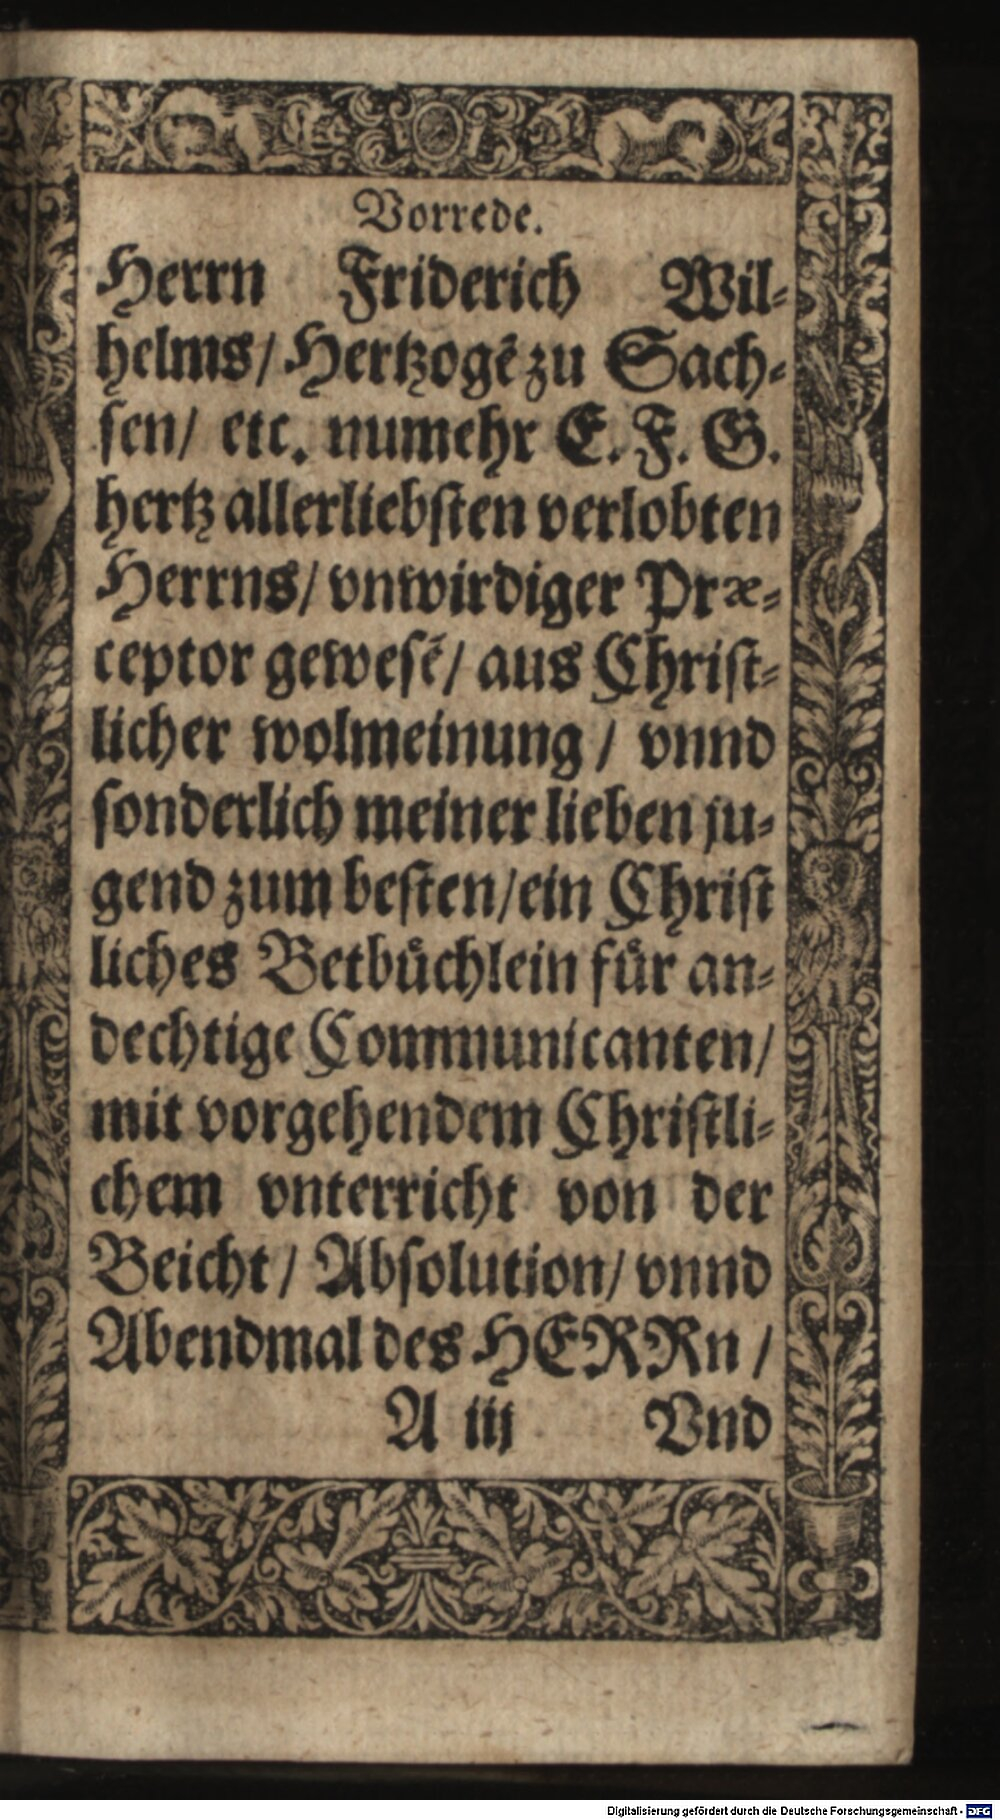 Vorrede.
Herrn Friderich Wil-
helms/ Hertzogẽ zu Sach-
sen/ etc. numehr E. F. G.
hertz allerliebsten verlobten
Herrns/ vnwirdiger Præ-
ceptor gewesẽ/ aus Christ-
licher wolmeinung/ vnnd
sonderlich meiner lieben ju-
gend zum besten/ein Christ
liches Betbuͤchlein fuͤr an-
dechtige Communicanten/
mit vorgehendem Christli-
chem vnterricht von der
Beicht/ Absolution/ vnnd
Abendmal des HERRn/
A iij Vnd
Digitalisierung gefördert durch die Deutsche Forschungsgemeinschaft - DFG